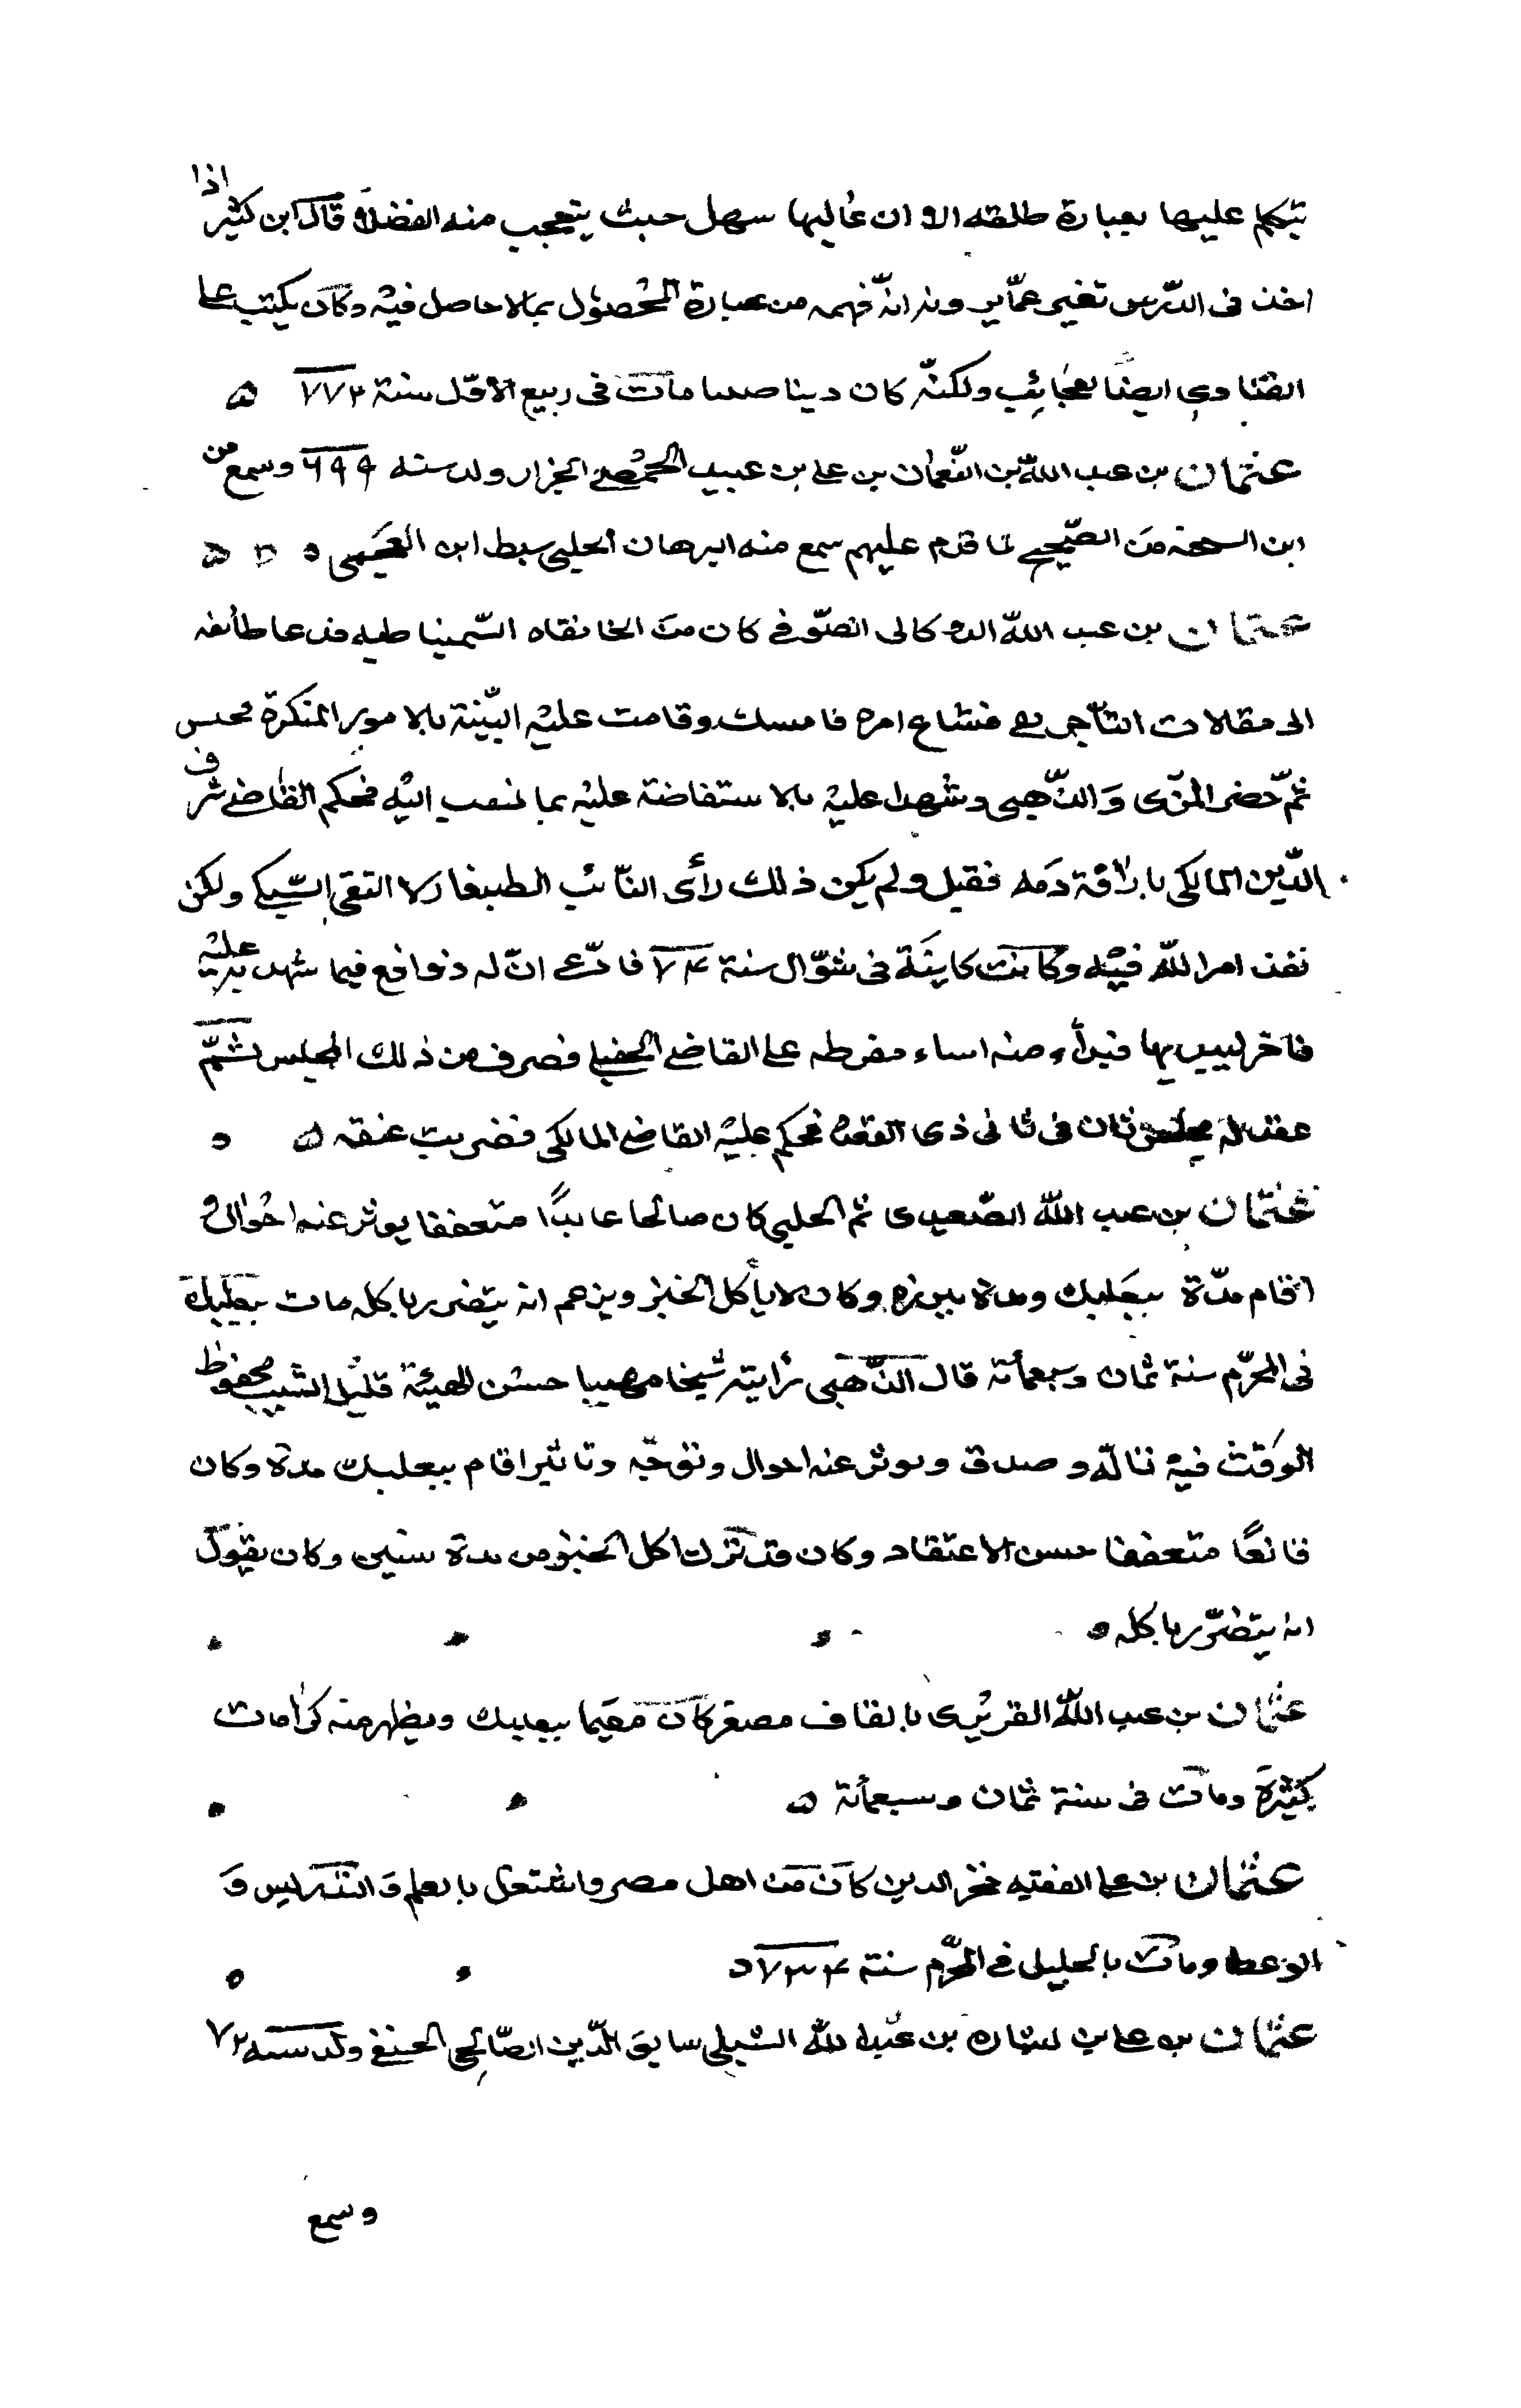 يتكلم عليها بعبارة طلقه الا ان غالبها سهل حيث يتعجب منه الفضلاء قال ابن كثير اذا
اخذ في الدّرس تغير عمّا يريد ونه انّه فهمه من عبارة المحصول بمالا حاصل فيه وكان يكتب على
الفتاوى ايضًا لعجائب ولكنّه كان دينا صينا مات في ربيع الاوّل سنة ٧٧٣
عثمان بن عبد اللّه بن النّعمان بن على بن عبيد الحمصى الجزار ولد سنه ٦٩٩ وسمع من
ابن الشحنه من الصّحيح لما قدم عليهم سمع منه البرهان الحلبى سبط ابن العجمى
عثمان بن عبد اللّه الدوكالى الصّوفى كان من الخانقاه السّميناطيه فدعا طائفه
الى مقالات التّاجريقى فشاع امره فامسك وقامت عليه البيّنة بالامور المنكرة فحبس
ثمّ حضر المزّى وَالذّهبى وشهدا عليه بالاستفاضة عليه بما نسب اليه فحكم القاضى شرف
الدّين المالكى باراقة دمه فقيل ولم يكن ذلك رأى النّائب الطبغا ولا التقى السّبكى ولكن
نفذ امر اللّه فيه وكانت كاينة في شوّال سنة ٧٤ فادّعى انّ له دوافع فيما شهد به عليه
فاخر ليبديها فبدأ منه اساءة مفرطه على القاضى الحنبلى فصرف من ذلك المجلس ثمّ
عقد له مجلس ثان في ثانى ذى القعدة فحكم عليه القاضى المالكى فضربت عنقه
عثمان بن عبد اللّه الصّعيدى ثم الحلبى كان صالحا عابدًا متعففا يوثر عنه احوال
اقام مدّة ببعلبك ومدة ببرزه وكان لا يأكل الخبز ويزعم انه يتضرر باكله مات ببعلبك
في المحرّم سنة ثمان وسبعمأئة قال الذّهبى رأيته شيخا مهيبا حسن الهيئة قليل الشيب محفوظ
الوقت فيه تالّه وصدق ويوثر عنه احوال وتوجّه وتاثير اقام ببعلبك مدة وكان
قانعًا متعففا حسن الاعتقاد وكان قد ترك اكل الخبز من مدة سنين وكان يقول
انه يتضرّر باكله
عثمان بن عبد اللّه القريرى بالقاف مصغر كان مقيما ببعلبك ويظهر منه كرامات
كثيرة ومات في سنة ثمان وسبعمأئة
عثمان بن على الفقيه فخر الدين كان من اهل مصر واشتغل بالعلم وَالتّدريس وَ
الوعظ ومات بالخليل في المحرّم سنة ٧٣٤
عثمان بن على بن بشارة بن عبد اللّه الشبلى سابق الدّين الصّالحى الحنفى ولد سنه ٧٢
وسمع